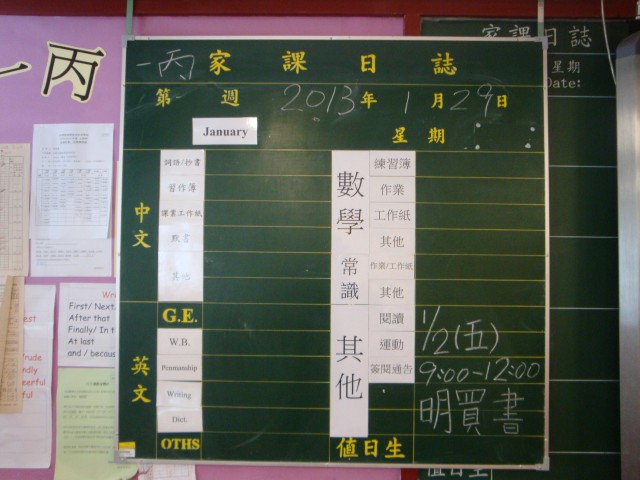 一丙
家課日誌
星期
Date:
一丙 家課日誌
第 週 2013年 1月29日
January
星期
中文
詞語/抄書
習作簿
課業工作紙
默書
其他
英文
G.E.
W.B.
Penmanship
Writing
Dict.
OTHS
數學
練習簿
作業
工作紙
其他
常識
作業/工作紙
其他
其他
閱讀
運動
簽閱通告
值日生
1/2(五)
9:00-12:00
明買書
First/ Next
After that
Finally/ In t
At last
and / becaus
值日生